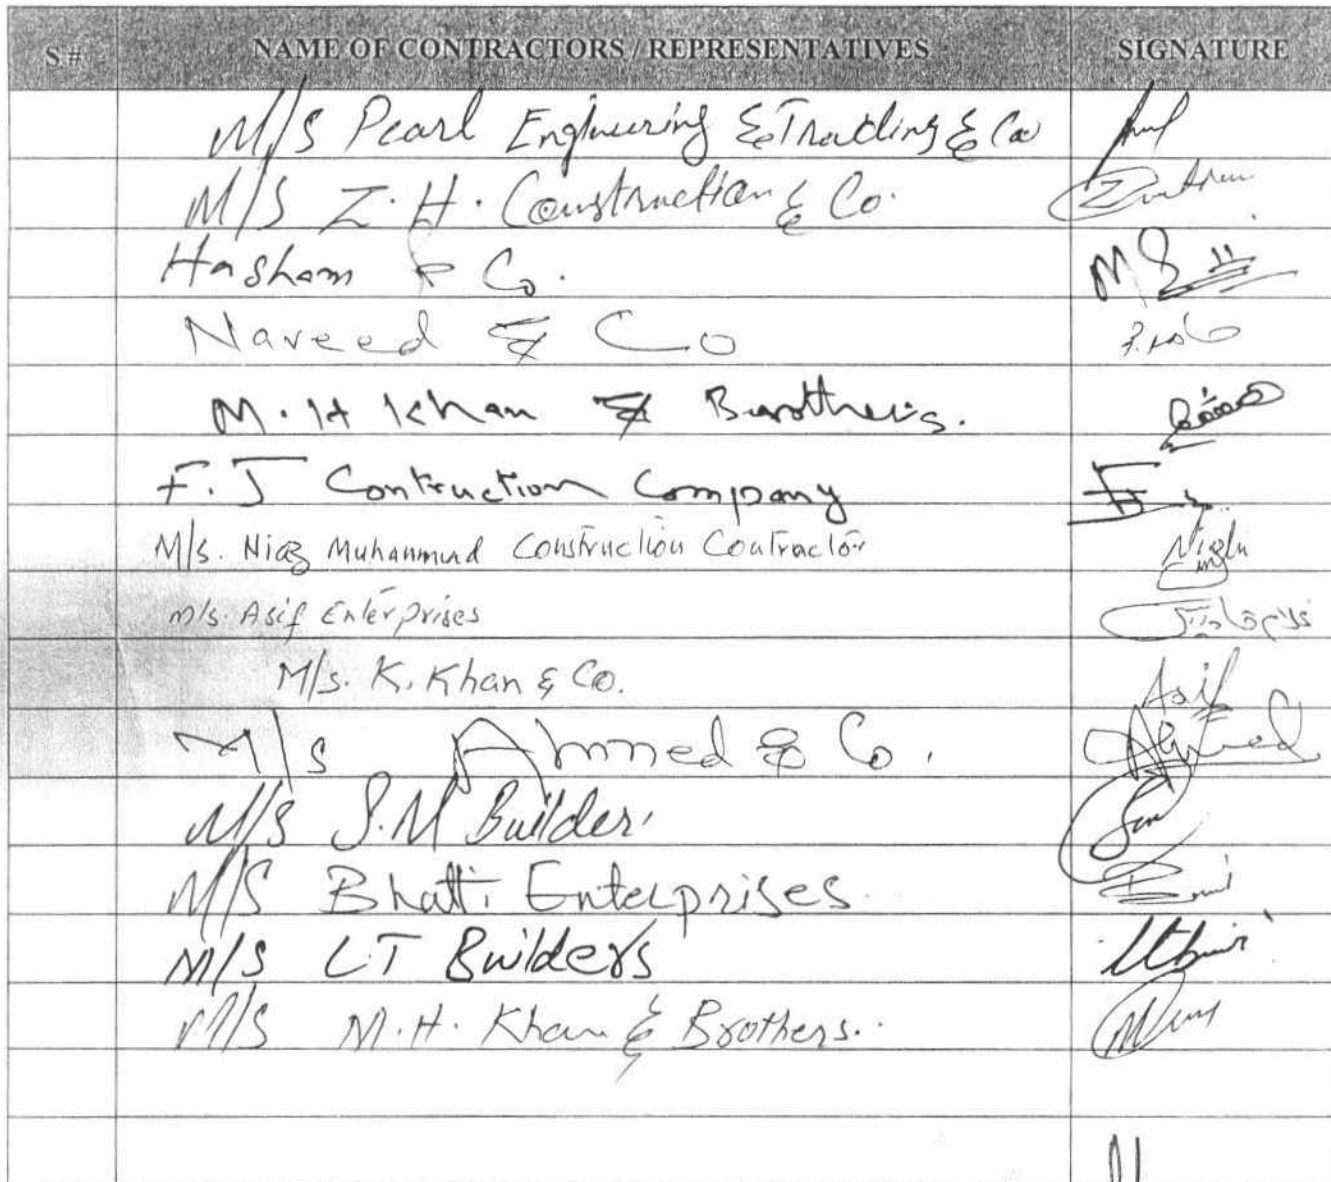 S # NAME OF CONTRACTORS / REPRESENTATIVES SIGNATURE
M/S Pearl Engineering & Trading & Co
M/S Z.H. Construction & Co.
Hasham & Co.
Naveed & Co
M.H Khan & Brothers.
F.J Contruction Company
M/s. Niaz Muhammad Construction Contractor
M/s. Asif Enterprises
M/s. K. Khan & Co.
Asif
M/s Ahmed & Co. Ahmed
M/S S.M Builder.
M/S Bhatti Enterprises.
M/S LT Builders
M/S M.H. Khan & Brothers.